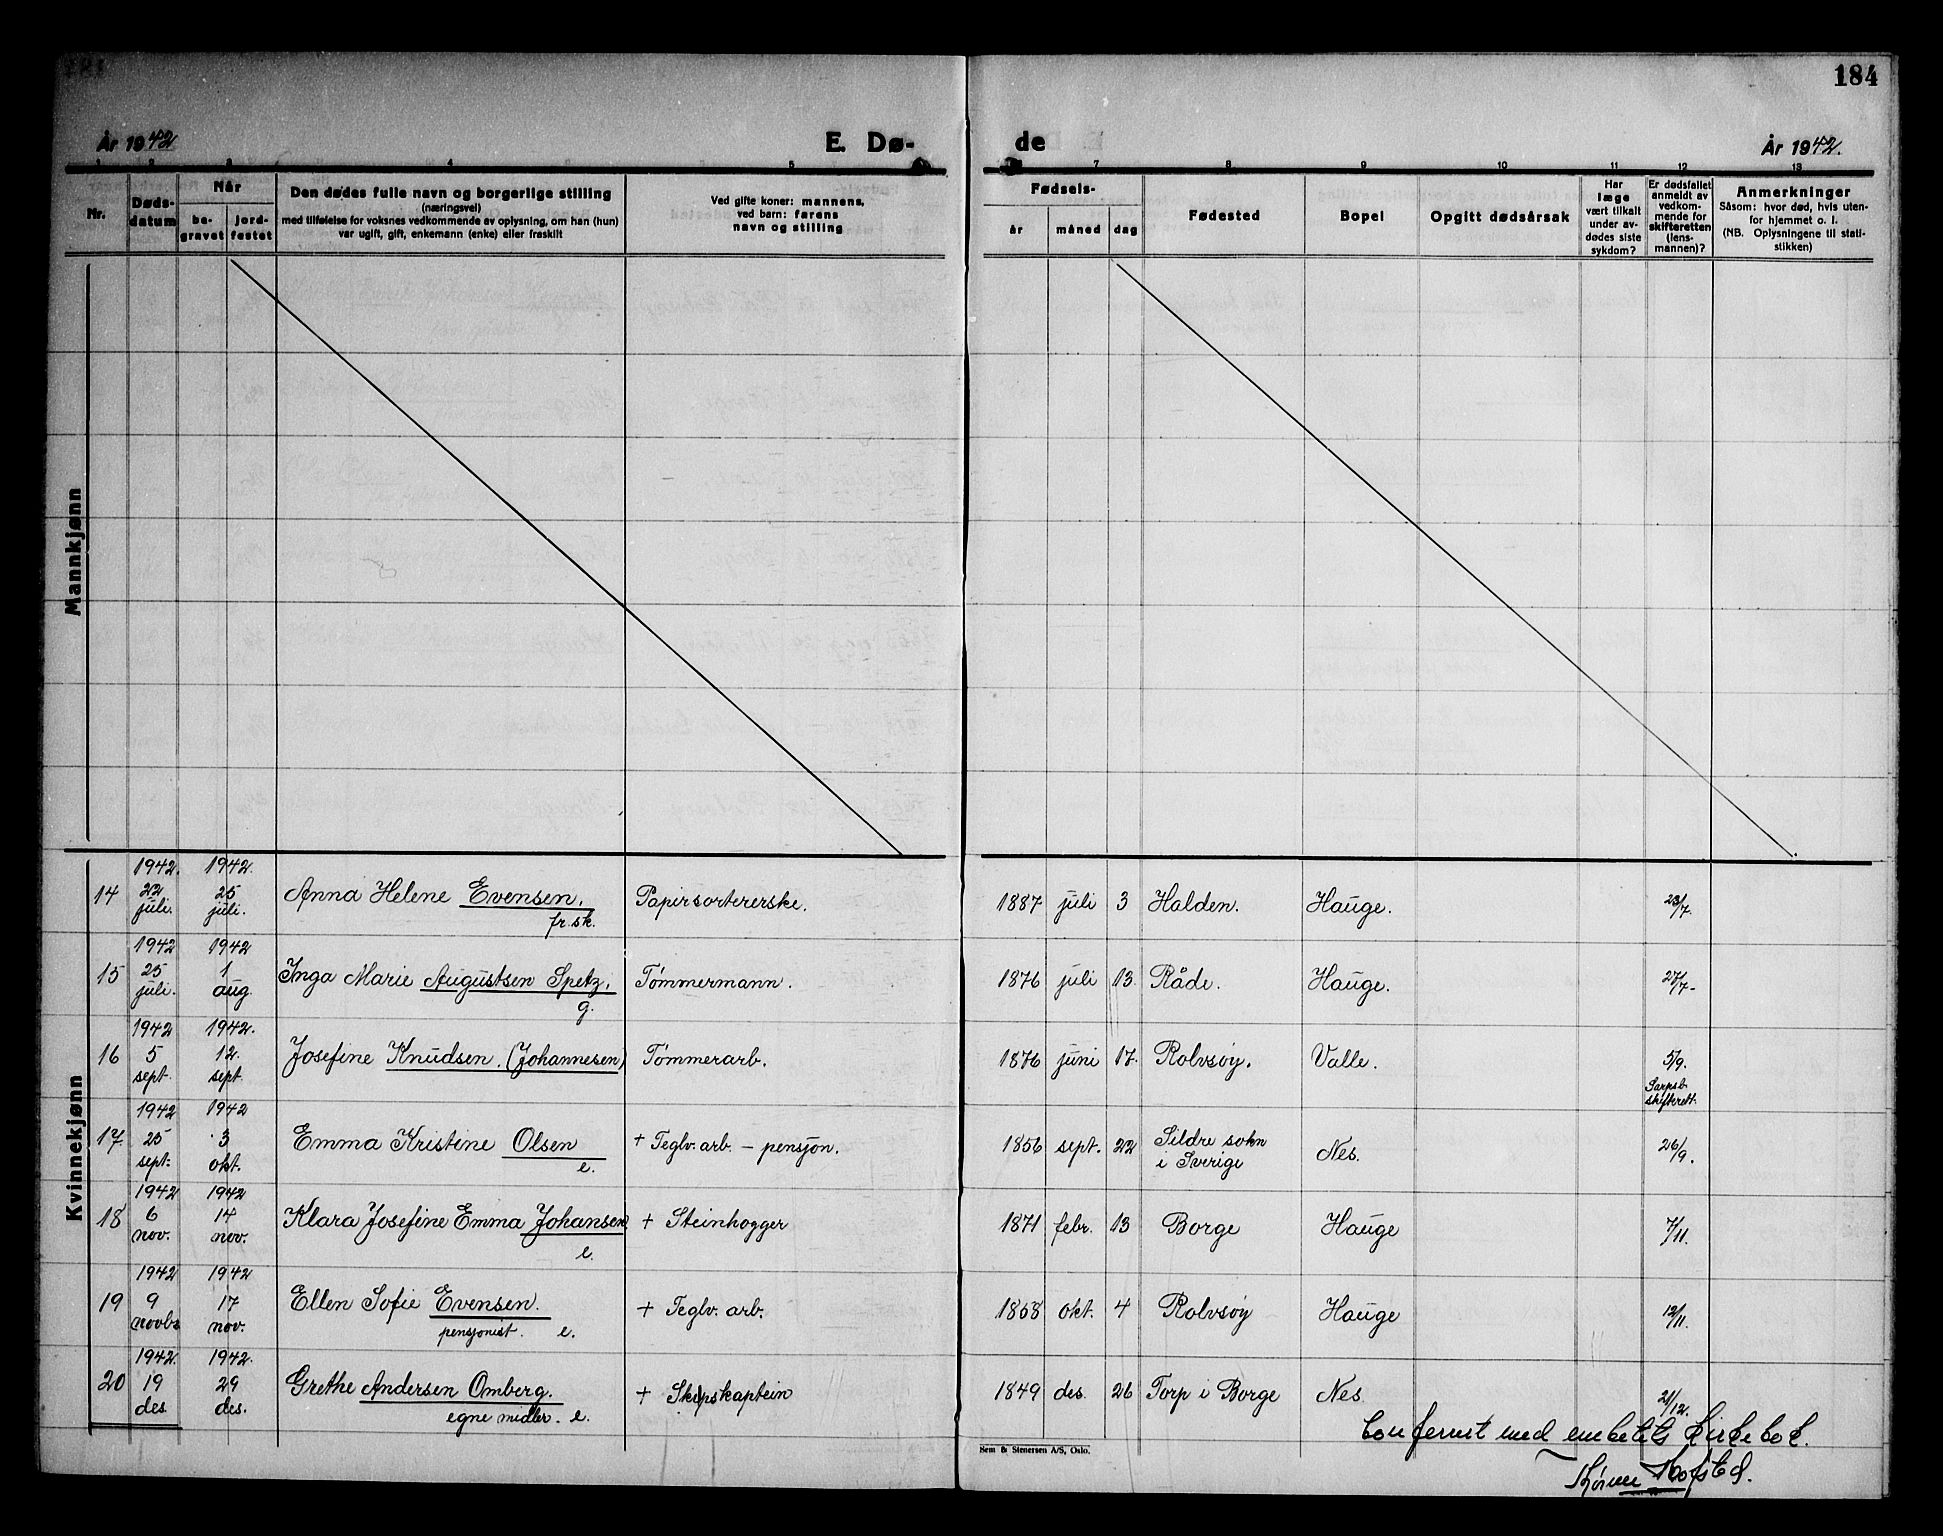 184
År 1942
E. Dø-
de
År 1942.
1 2 3 4 5 6 7 8 9 10 11 12 13
Nr.
Døds-
datum
Når
be-
gravet
jord-
festet
Den dødes fulle navn og borgerlige stilling
(næringsvei)
med tilføielse for voksnes vedkommende av oplysning, om han (hun)
var ugift, gift, enkemann (enke) eller fraskilt
Ved gifte koner: mannens,
ved barn: farens
navn og stilling
Fødsels-
år
måned
dag
Fødested
Bopel
Opgitt dødsårsak
Har
læge
vært tilkalt
under av-
dødes siste
sykdom?
Er dødsfallet
anmeldt av
vedkom-
mende for
skifteretten
(lens-
mannen)?
Anmerkninger
Såsom: hvor død, hvis uten-
for hjemmet o. l.
(NB. Oplysningene til stati-
stikken)
Mannkjønn
Kvinnekjønn
1942. 1942.
14 22 juli. 25 juli. Anna Helene Evensen. Papirsortererske. 1887 juli 3 Halden. Hauge. 23/7.
fr. sk.
1942 1942
15 25 juli. 1 aug. Inga Marie Augustsen Spetz. Tømmermann. 1876 juli 13. Råde. Hauge. 27/7-
g.
1942 1942.
16 5 sept. 12. sept. Josefine Knudsen. (Johannesen) Tømmerarb. 1876 juni 17. Rolvsøy. Valle. 5/9.
Sarpsb.
skifterett.
1942 1942
17. 25 sept. 3 okt. Emma Kristine Olsen + Teglv. arb. - pensjon. 1856 sept. 22 Sildre sokn
i Sverige Nes. 26/9.
e.
1942 1942
18 6 nov. 14 nov. Klara Josefine Emma Johansen + Steinhogger 1871 febr. 13 Borge Hauge 7/11.
e.
1942 1942
19 9 novbr 17 nov. Ellen Sofie Evensen. + Teglv. arb. 1858 okt. 4 Rolvsøy Hauge 12/11.
pensjonist. e.
1942. 1942.
20 19 des. 29 des. Grethe Andersen Omberg. + Skipskaptein 1849 des. 26 Torp i Borge Nes. 21/12.
egne midler. e.
Sem & Stenersen A/S, Oslo.
Conferert med embetets kirkebok.